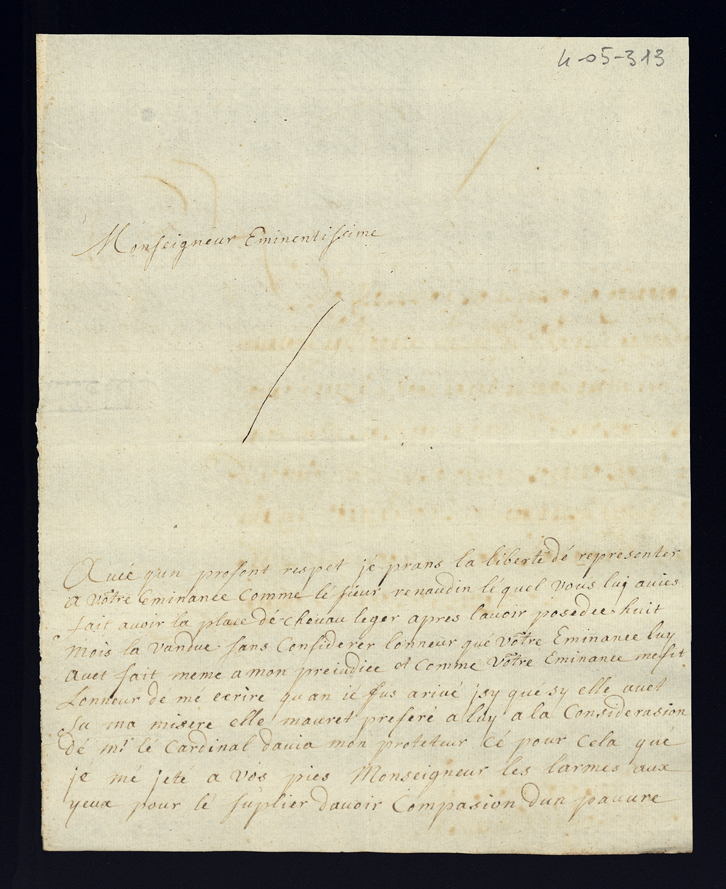 4-05-313
Monseigneur Eminentissime
Avec qun profont respet je prans la liberté dé representer
a vôtre Eminance Comme lé sieur renaudin lé quel vous luy avies
fait avoir la place dé chevau leger apres lavoir posedée huit
mois la vandue sans Considerer lonneur qué vôtre Eminance luy
avet fait meme a mon prejudice et Comme vôtre Eminance mesit
Lonneur de mé ecrire quan ie fus arivé jsy qué sy elle avet
su ma misere elle mauret preferé a luy a la Considerasion
dé mr lé Cardinal davia mon protetur Cé pour Cela qué
jé mé jete a vos pies Monseigneur les larmes aux
yeux pour lé suplier davoir Compasion dun pauvre